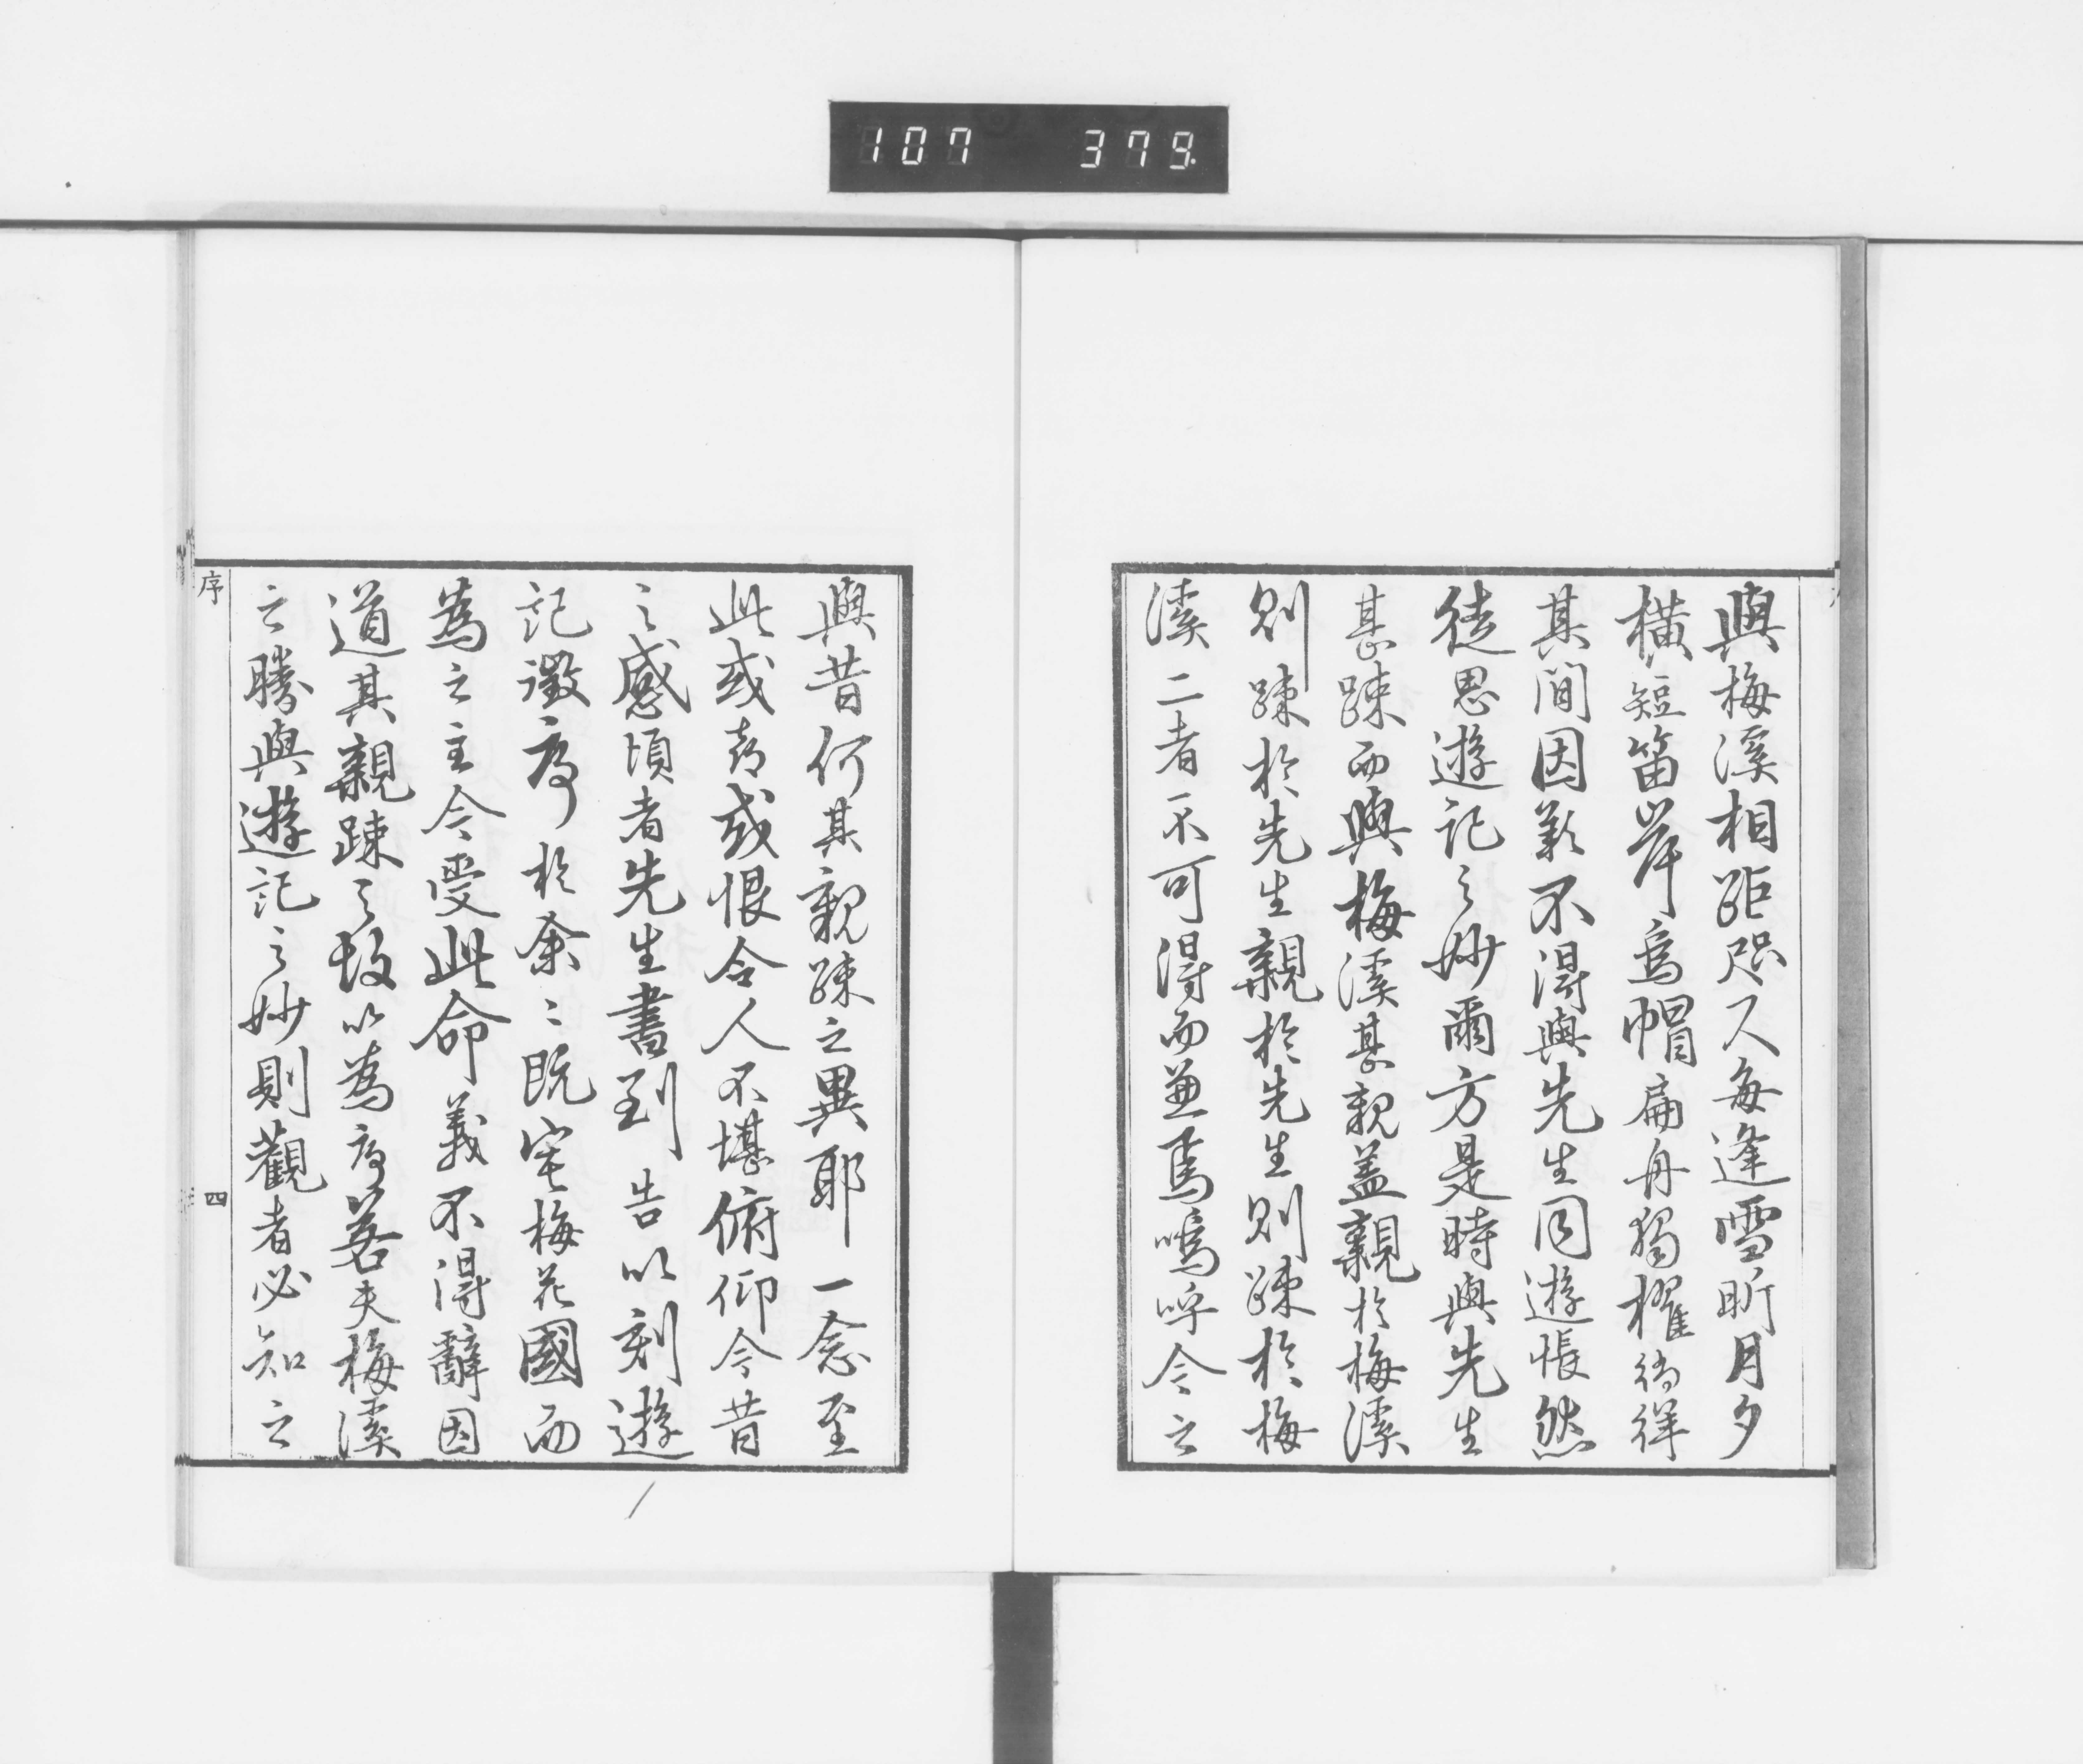 107 379.
與梅溪相距咫尺每逢雪晰月夕
橫短笛岸烏帽扁舟獨櫂徜徉
其間因歎不得與先生同遊悵然
徒思遊記之妙爾方是時與先生
甚踈而與梅溪甚親蓋親於梅溪
則踈於先生親於先生則踈於梅
溪二者不可得而兼焉嗚呼今之
與昔何其親踈之異耶一念至
此或喜或恨令人不堪俯仰今昔
之感頃者先生書到告以刻遊
記徵序於余〻既宅梅花國而
為之主今受此命義不得辭因
道其親踈之故以為序若夫梅溪
之勝與遊記之妙則觀者必知之
序 四